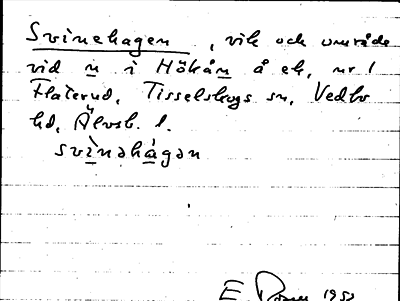 Svinehagen, vik och område
vid n i Hökån å ek, nr 1
Flaterud, Tisselskogs sn, Vedbo
hd, Älvsb. l.
svinəhágən
E. 1952